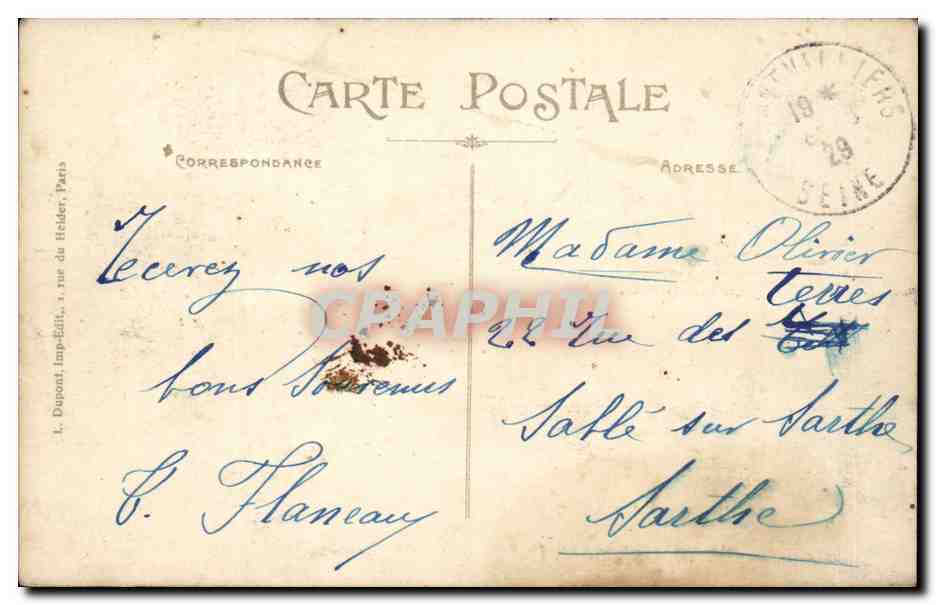 CARTE POSTALE
CORRESPONDANCE
ADRESSE
19 *
29
SEINE
L. Dupont, Imp-Edit., 1, rue du Helder, Paris
Recevez nos
bons Souvenirs
Madame Olivier
22 Rue des
terres
Sablé sur Sarthe
Sarthe
CPAPHIL